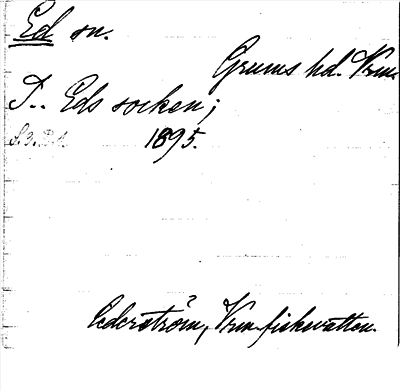 Ed sn.
Grums hd. Vrm.
T.. Eds socken;
S. 3. 1895.
Cederström, Vrm. fiskevatten.